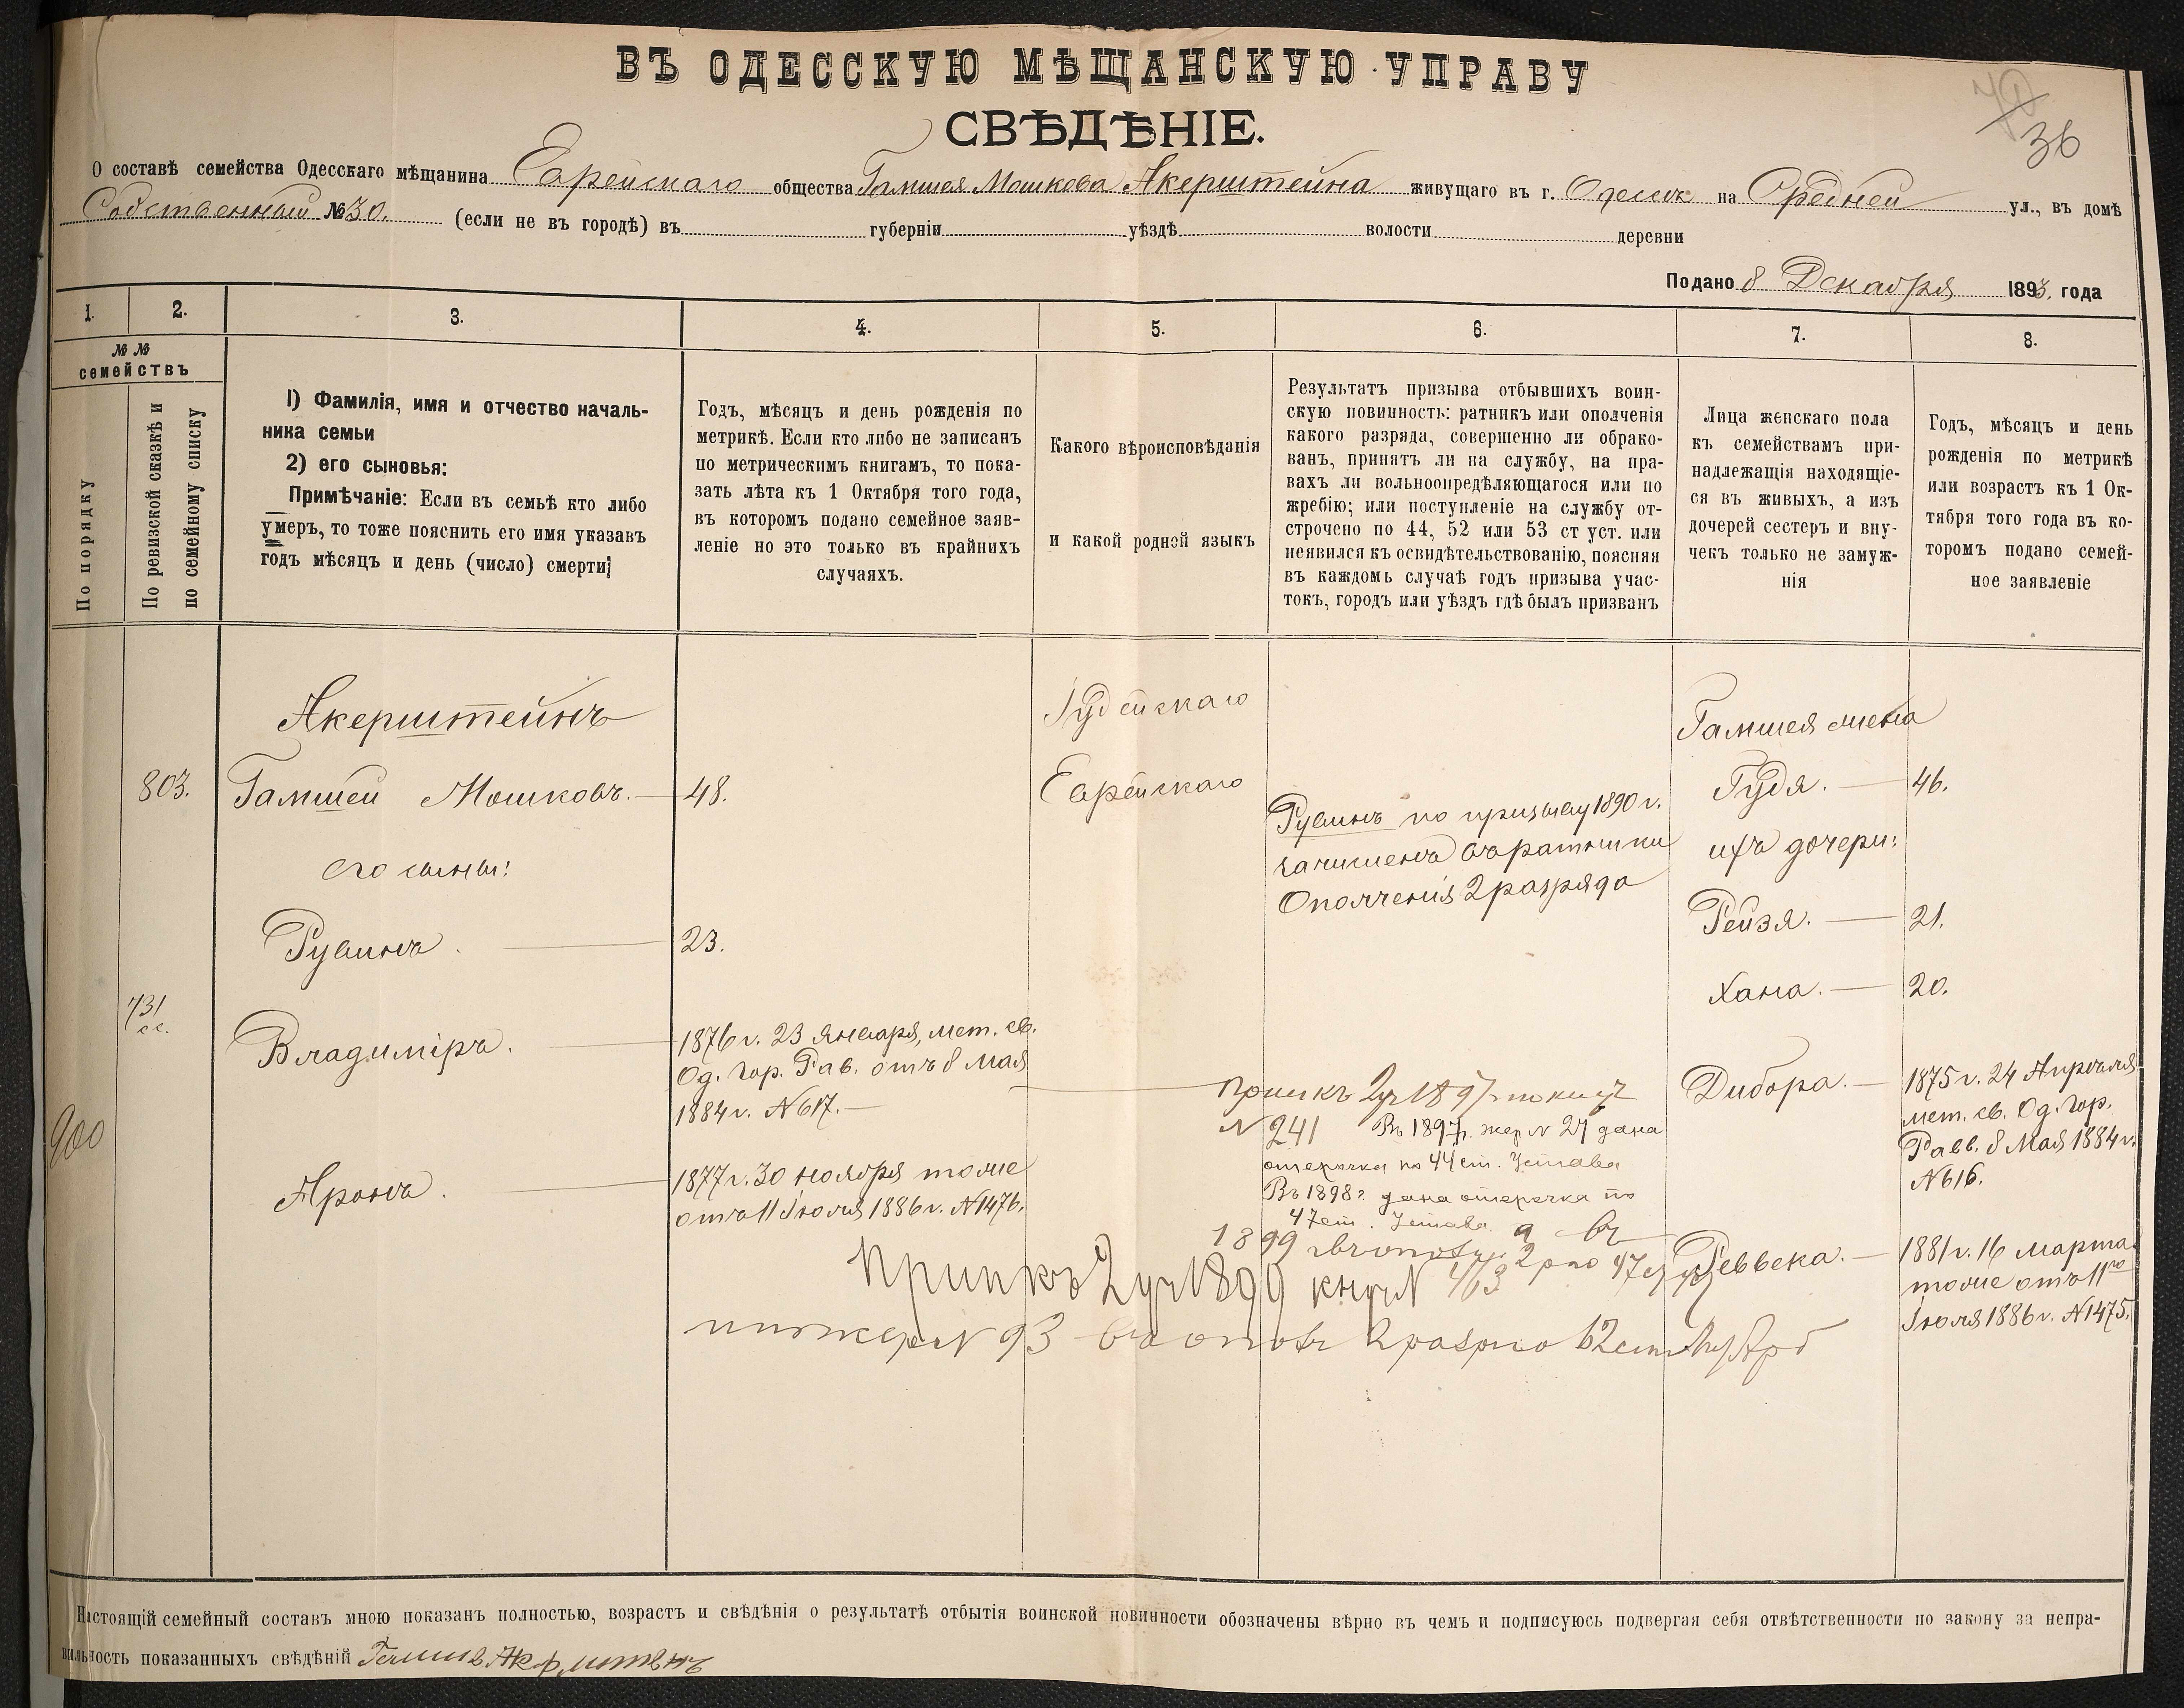 ВЪ ОДЕССКУЮ МѢЩАНСКУЮ УПРАВУ
СВѢДѢНІЕ.
36
О составѣ семейства Одесскаго мѣщанина Еврейскаго общества Гамшея Мошкова Акерштейна живущаго въ г. Одессѣ на Средней ул., въ домѣ
Собственный № 30. (если не въ городѣ) въ губерніи уѣздѣ волости деревни
Подано 8 Декабря 1893. года
1. 2. 3. 4. 5. 6. 7. 8.
№ №
семействъ
По порядку
По ревизской сказкѣ и
по семейному списку
1) Фамилія, имя и отчество началь-
ника семьи
2) его сыновья:
Примѣчаніе: Если въ семьѣ кто либо
умеръ, то тоже пояснить его имя указавъ
годъ мѣсяцъ и день (число) смерти;
Годъ, мѣсяцъ и день рожденія по
метрикѣ. Если кто либо не записанъ
по метрическимъ книгамъ, то пока-
зать лѣта къ 1 Октября того года,
въ которомъ подано семейное заяв-
леніе но это только въ крайнихъ
случаяхъ.
Какого вѣроисповѣданія
и какой родной языкъ
Результатъ призыва отбывшихъ воин-
скую повинность: ратникъ или ополченія
какого разряда, совершенно ли обрако-
ванъ, принятъ ли на службу, на пра-
вахъ ли вольноопредѣляющагося или по
жребію; или поступленіе на службу от-
строчено по 44, 52 или 53 ст уст. или
неявился къ освидѣтельствованію, поясняя
въ каждомь случаѣ годъ призыва учас-
токъ, городъ или уѣздъ гдѣ былъ призванъ
Лица женскаго пола
къ семействамъ при-
надлежащія находящіе-
ся въ живыхъ, а изъ
дочерей сестеръ и вну-
чекъ только не замуж-
нія
Годъ, мѣсяцъ и день
рожденія по метрикѣ
или возрастъ къ 1 Ок-
тября того года въ ко-
торомъ подано семей-
ное заявленіе
900
803.
731
сс.
Акерштейнъ
Гамшей Мошковъ.
его сыны:
Рувинъ.
Владиміръ.
Аронъ.
48.
23.
1876 г. 23 января, мет. св.
Од. Гор. Рав. отъ 8 Мая
1884 г. N 617.
1877 г. 30 ноября тоже
отъ 11 Іюля 1886 г. N 1476.
Іудейскаго
Еврейскаго
Рувинъ по призыву 1890 г.
зачисленъ въ ратники
Ополченія 2 разряда
Припкъ 2 уч 1897
N 241 Въ 1897 г. жер N 27 дана
отсрочка по 44 ст. Устава
Въ 1898 г дана отсрочка по
47 ст. Устава а въ
1899
Припкъ 2 уч 1899 кн N
N 93 въ 2 по 62 ст
Гамшея жена
Гудя.
ихъ дочери:
Рейзя.
Хана.
Дибора.
Реввека.
46.
21.
20.
1875 г. 24 Апрѣля
мет. св. Од. Гор.
Равв. 8 Мая 1884 г.
N 616.
1881 г. 16 марта
тоже отъ 11го
Іюля 1886 г. N 1475.
Настоящій семейный составъ мною показанъ полностью, возрастъ и свѣдѣнія о результатѣ отбытія воинской повинности обозначены вѣрно въ чемъ и подписуюсь подвергая себя отвѣтственности по закону за непра-
вильность показанныхъ свѣдѣній